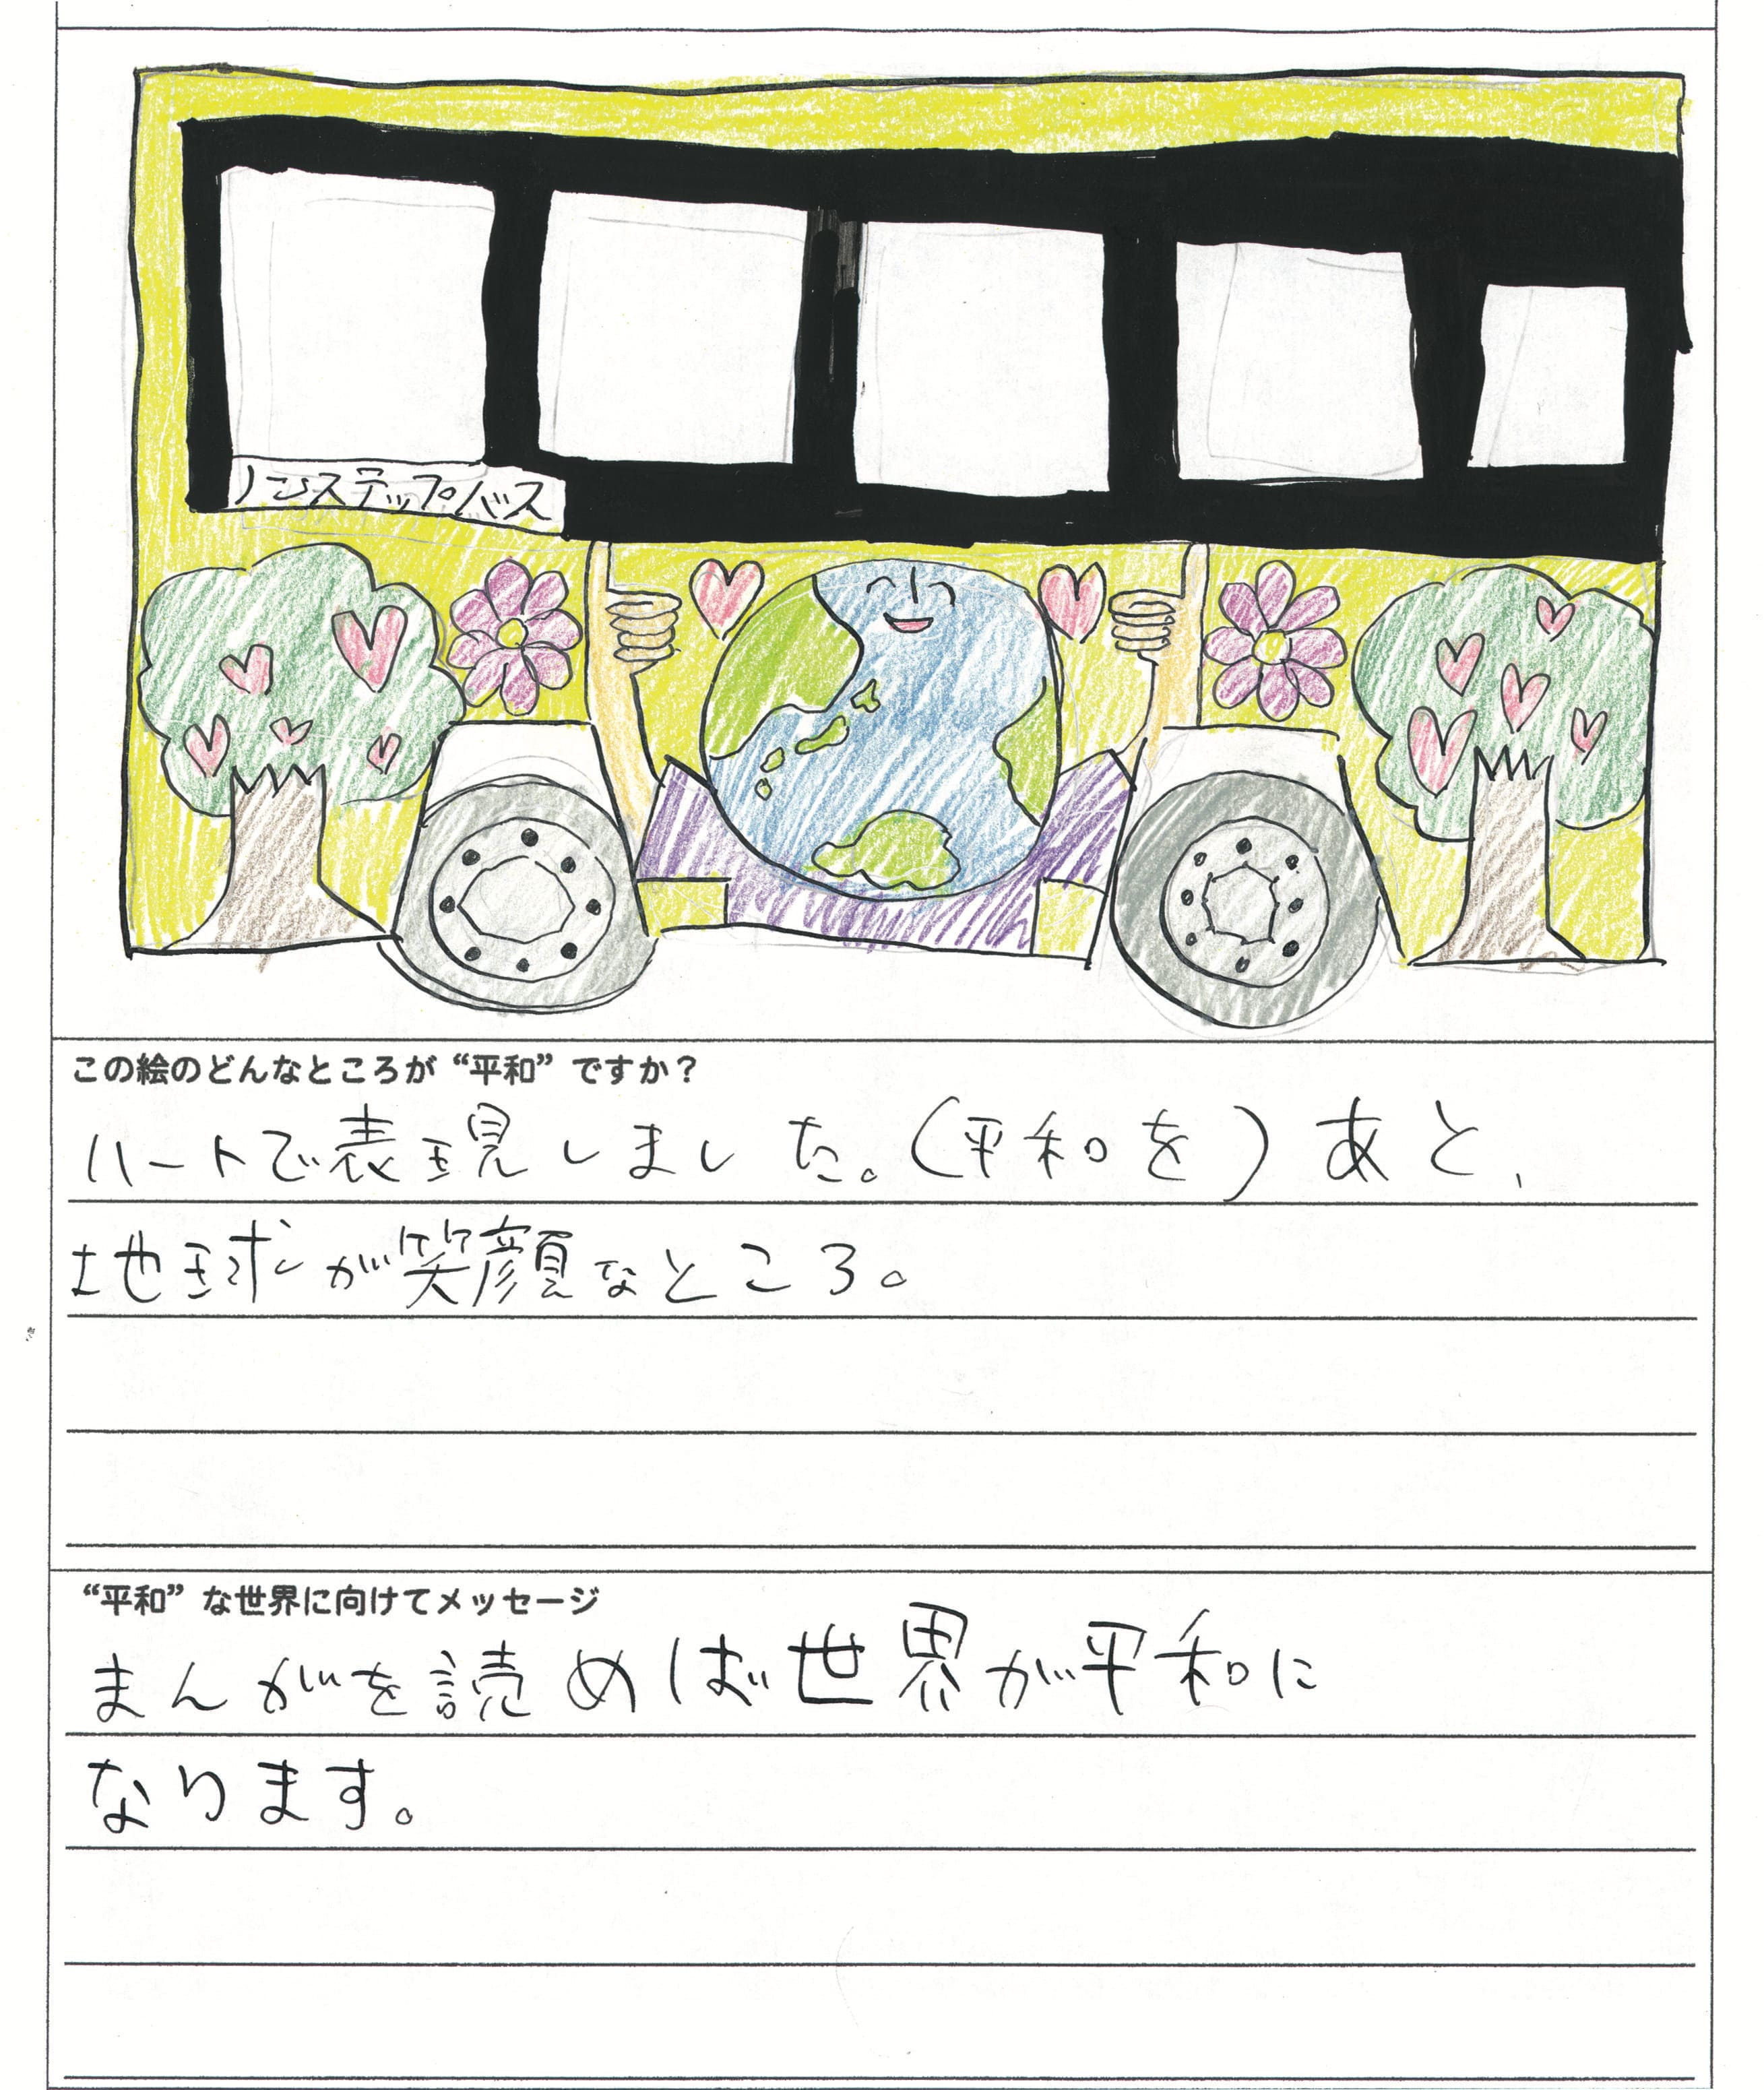 ノンステップバス
この絵のどんなところが“平和”ですか？
ハートで表現しました。（平和を）あと、
地球が笑顔なところ。
“平和”な世界に向けてメッセージ
まんがを読めば世界が平和に
なります。